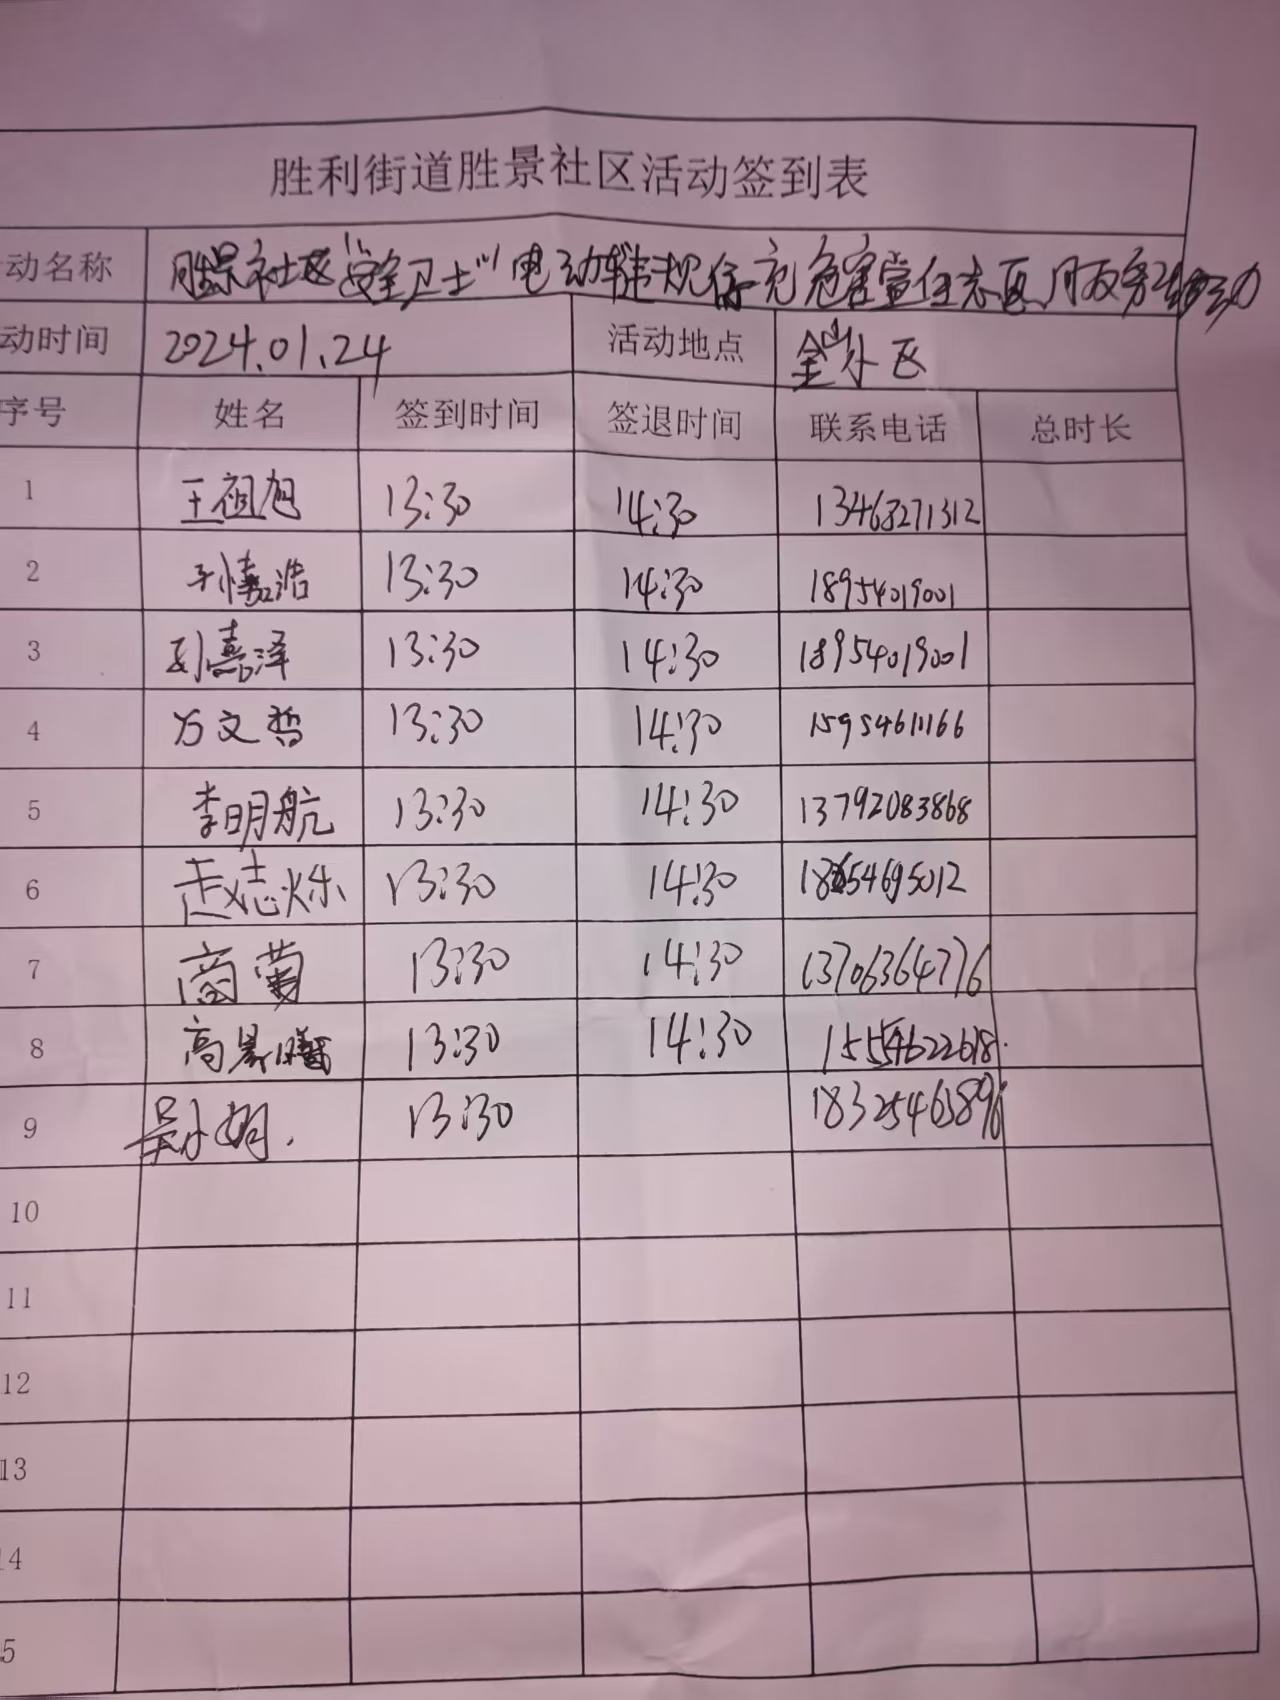 胜利街道胜景社区活动签到表
动名称 胜景社区"安全卫士"电动车违规停充危害宣传志愿服务活动
动时间 2024.01.24 活动地点 金山小区
序号 姓名 签到时间 签退时间 联系电话 总时长
1 王祖旭 13:30 14:30 13468271312
2 13:30 14:30 18954019001
3 嘉泽 13:30 14:30 18954019001
4 万文哲 13:30 14:30 15954611166
5 李明航 13:30 14:30 13792083868
6 赵志烁 13:30 14:30 54695012
7 商 13:30 14:30 13706364776
8 高景曦 13:30 14:30
9 吴小娟. 13:30 18325463896
10
11
12
13
14
5